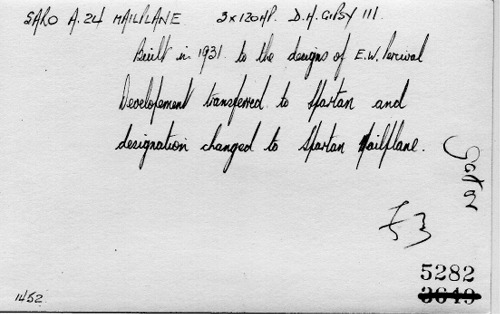 SARO A.24 MAILPLANE 3x120HP. D.H. GIPSY III.
Built in 1931 to the designs of E.W. Percival
Development transferred to Spartan and
designation changed to Spartan Mailplane.
5282
3649
1452